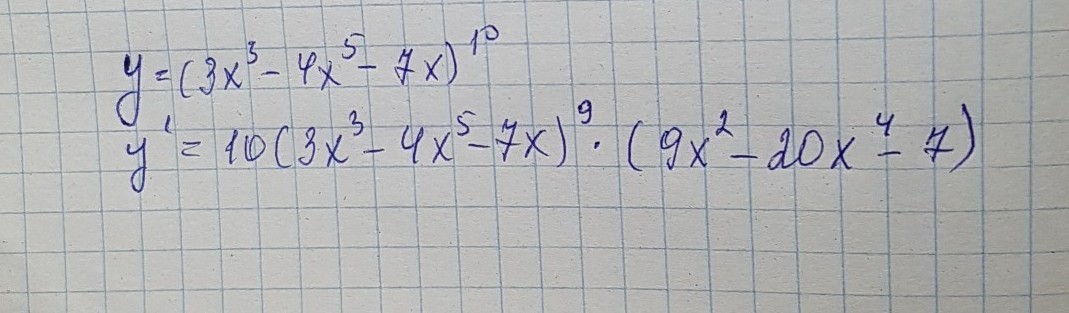 y = (3x³ - 4x⁵ - 7x)¹⁰
y' = 10(3x³ - 4x⁵ - 7x)⁹ · (9x² - 20x⁴ - 7)